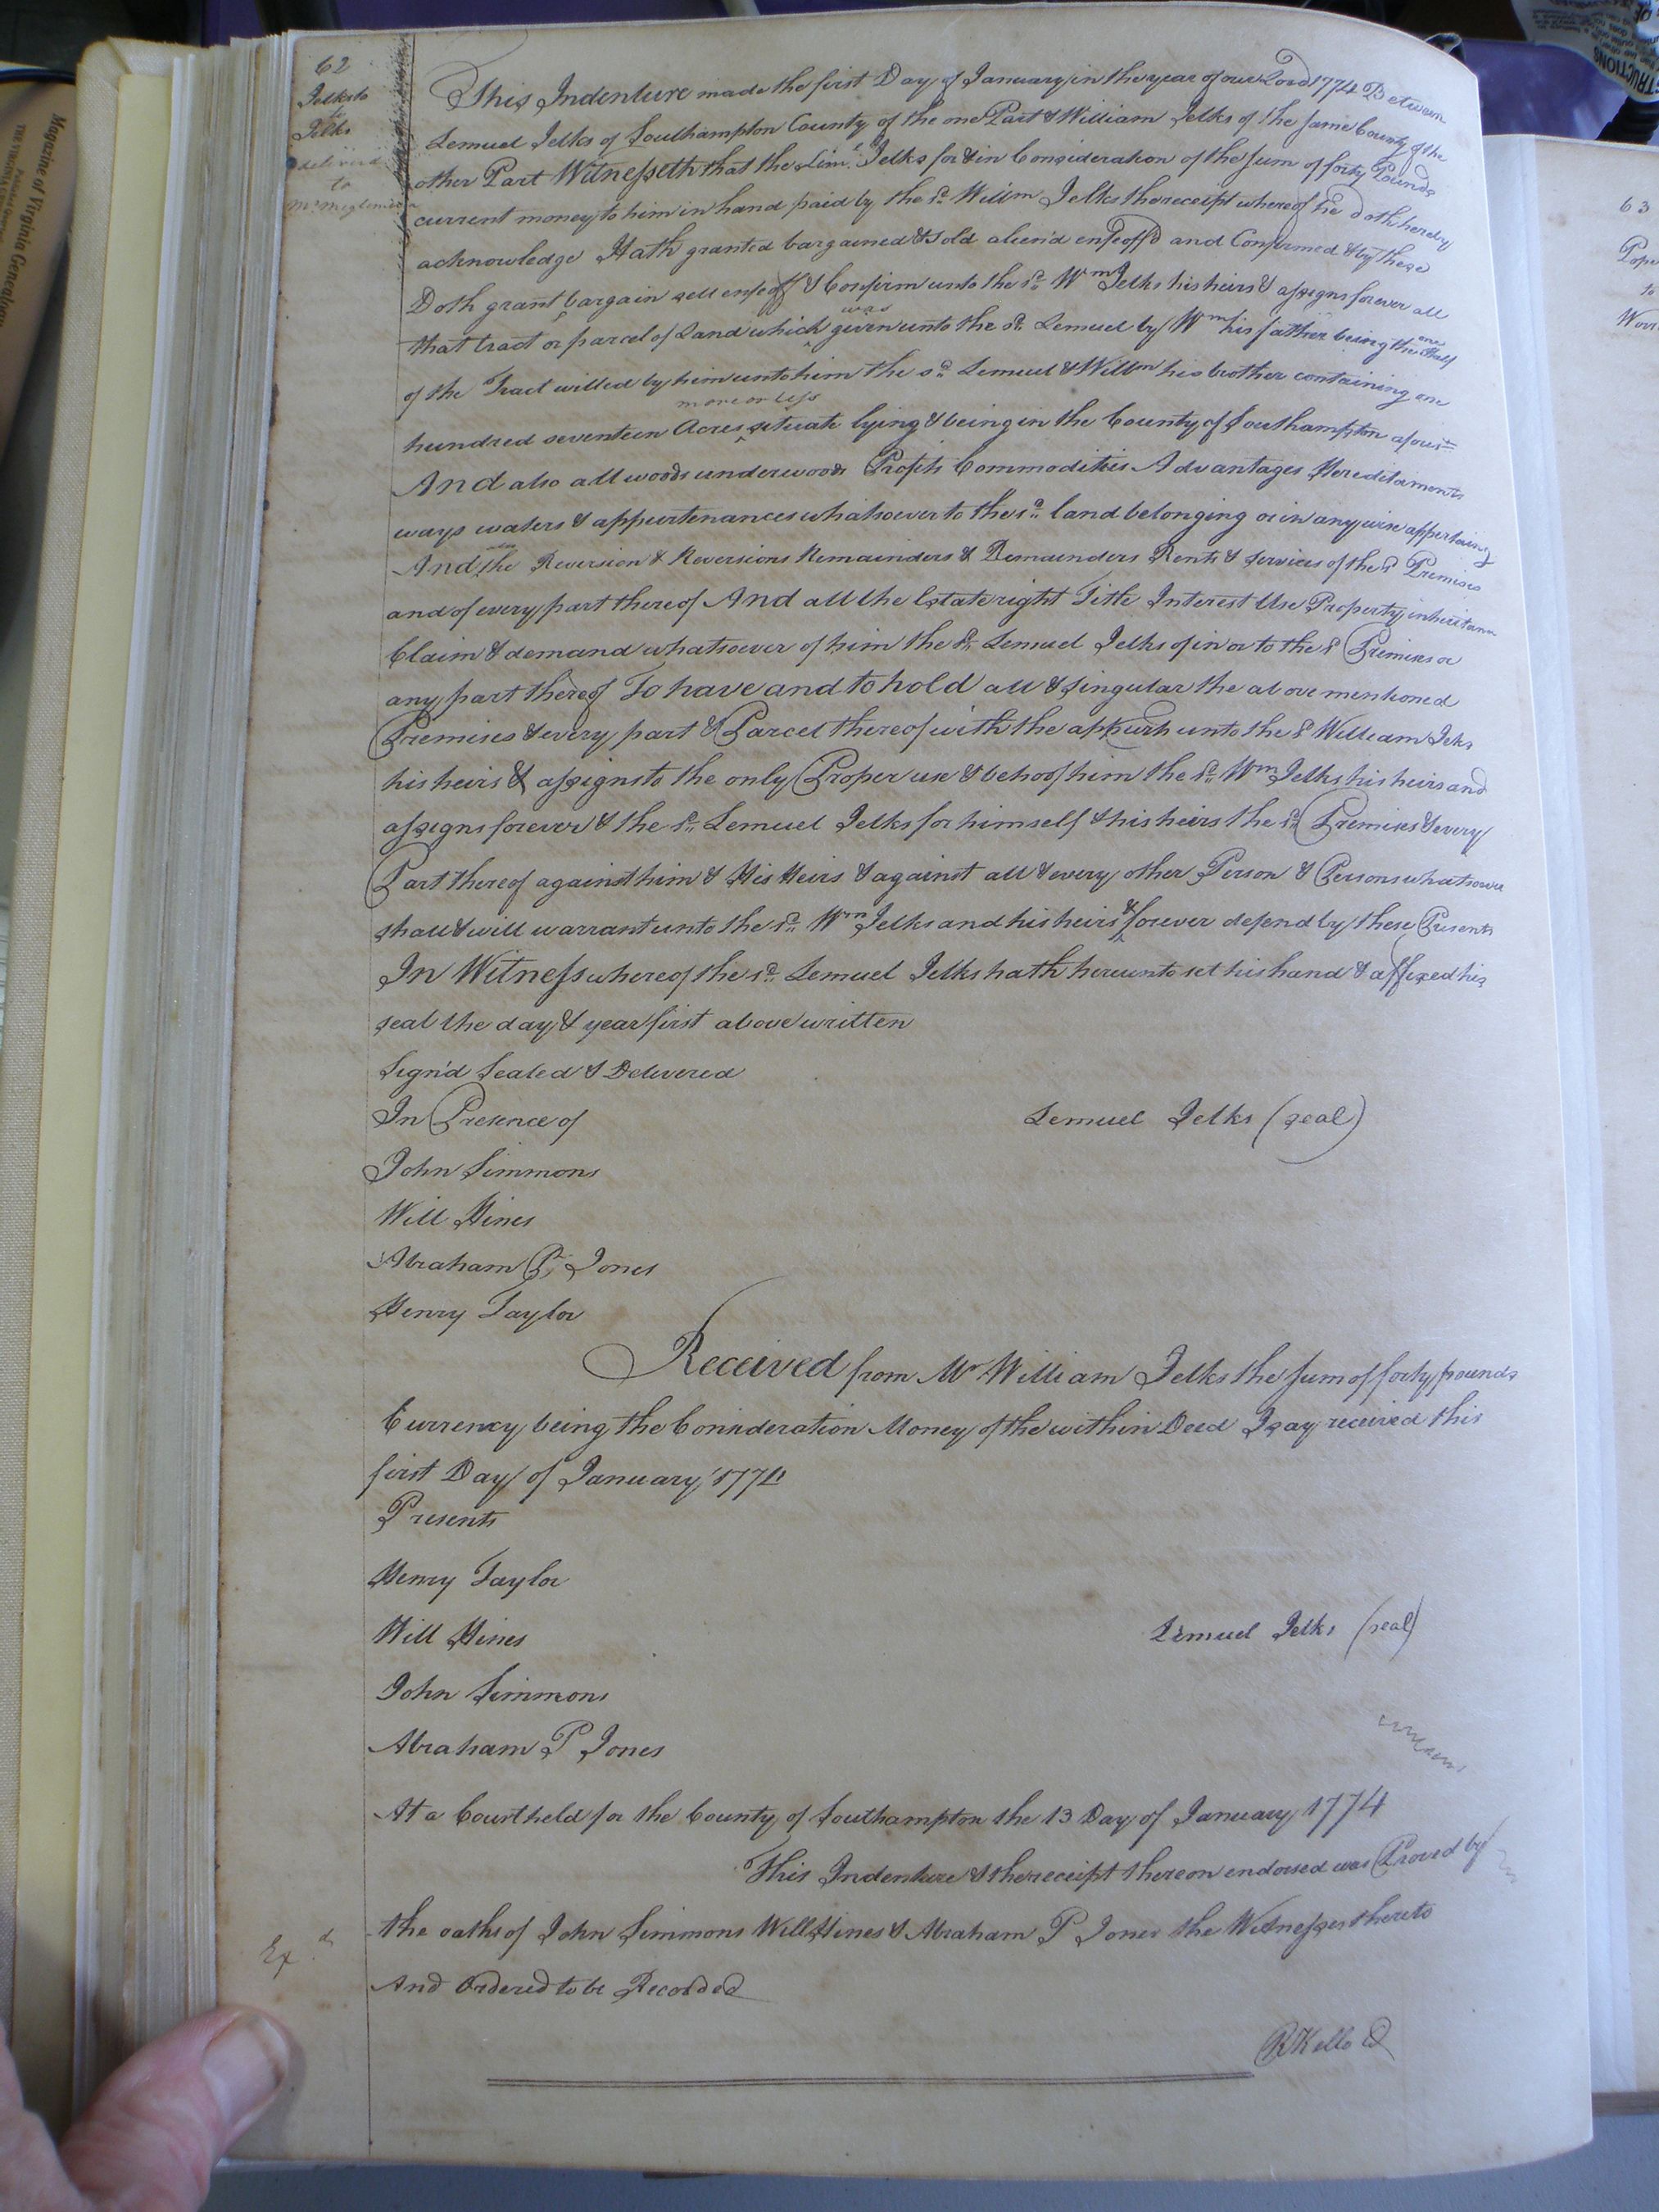 62
Jelks to
Jelks
delivered
to
This Indenture made the first Day of January in the year of our Lord 1774 Between
Lemuel Jelks of Southampton County of the one Part & William Jelks of the same County of the
other Part Witnesseth that the Lem.l Jelks for & in Consideration of the sum of forty Pounds
current money to him in hand paid by the sd. Willm Jelks the receipt whereof he doth hereby
acknowledge Hath granted bargained & sold alien'd enfeoff'd and Confirmed & by these
Doth grant bargain sell enfeoff & Confirm unto the sd. Wm Jelks his heirs & assigns forever all
that tract or parcel of Land which was given unto the sd. Lemuel by Wm his father being the one half
of the Tract willed by him unto him the sd. Lemuel & Willm his brother containing one
hundred seventeen Acres more or less situate lying & being in the County of Southampton afores.d
And also all woods underwoods Profits Commodities Advantages Hereditaments
ways waters & appurtenances whatsoever to the sd. land belonging or in any wise appertaing
And also the Reversion & Reversions Remainders & Remainders Rents & services of the sd Premises
and of every part thereof And all the Estate right Title Interest Use Property inheritance
Claim & demand whatsoever of him the sd. Lemuel Jelks of in or to the sd Premises or
any part thereof To have and to hold all & singular the above mentioned
Premises & every part & Parcel thereof with the appurts unto the sd William Jelks
his heirs & assigns to the only Proper use & behoof him the sd. Wm Jelks his heirs and
assigns forever & the sd. Lemuel Jelks for himself & his heirs the sd. Premises & every
Part thereof against him & His Heirs & against all & every other Person & Persons whatsoever
shall & will warrant unto the sd. Wm Jelks and his heirs & forever defend by these Presents
In Witness whereof the sd. Lemuel Jelks hath hereunto set his hand & affixed his
seal the day & year first above written
Sign'd Sealed & Delivered
In Presence of
Lemuel Jelks (seal)
John Simmons
Will Hines
Abraham P. Jones
Henry Taylor
Received from Mr William Jelks the sum of forty pounds
Currency being the Consideration Money of the within Deed I say received this
first Day of January 1774
Presents
Henry Taylor
Will Hines
Lemuel Jelks (seal)
John Simmons
Abraham P Jones
At a Court held for the County of Southampton the 13 Day of January 1774
This Indenture & the receipt thereon endorsed was Proved by
the oaths of John Simmons Will Hines & Abraham P Jones the Witnesses thereto
Exd.
And Ordered to be Recorded
R Kello
63
to
Magazine of Virginia Genealogy